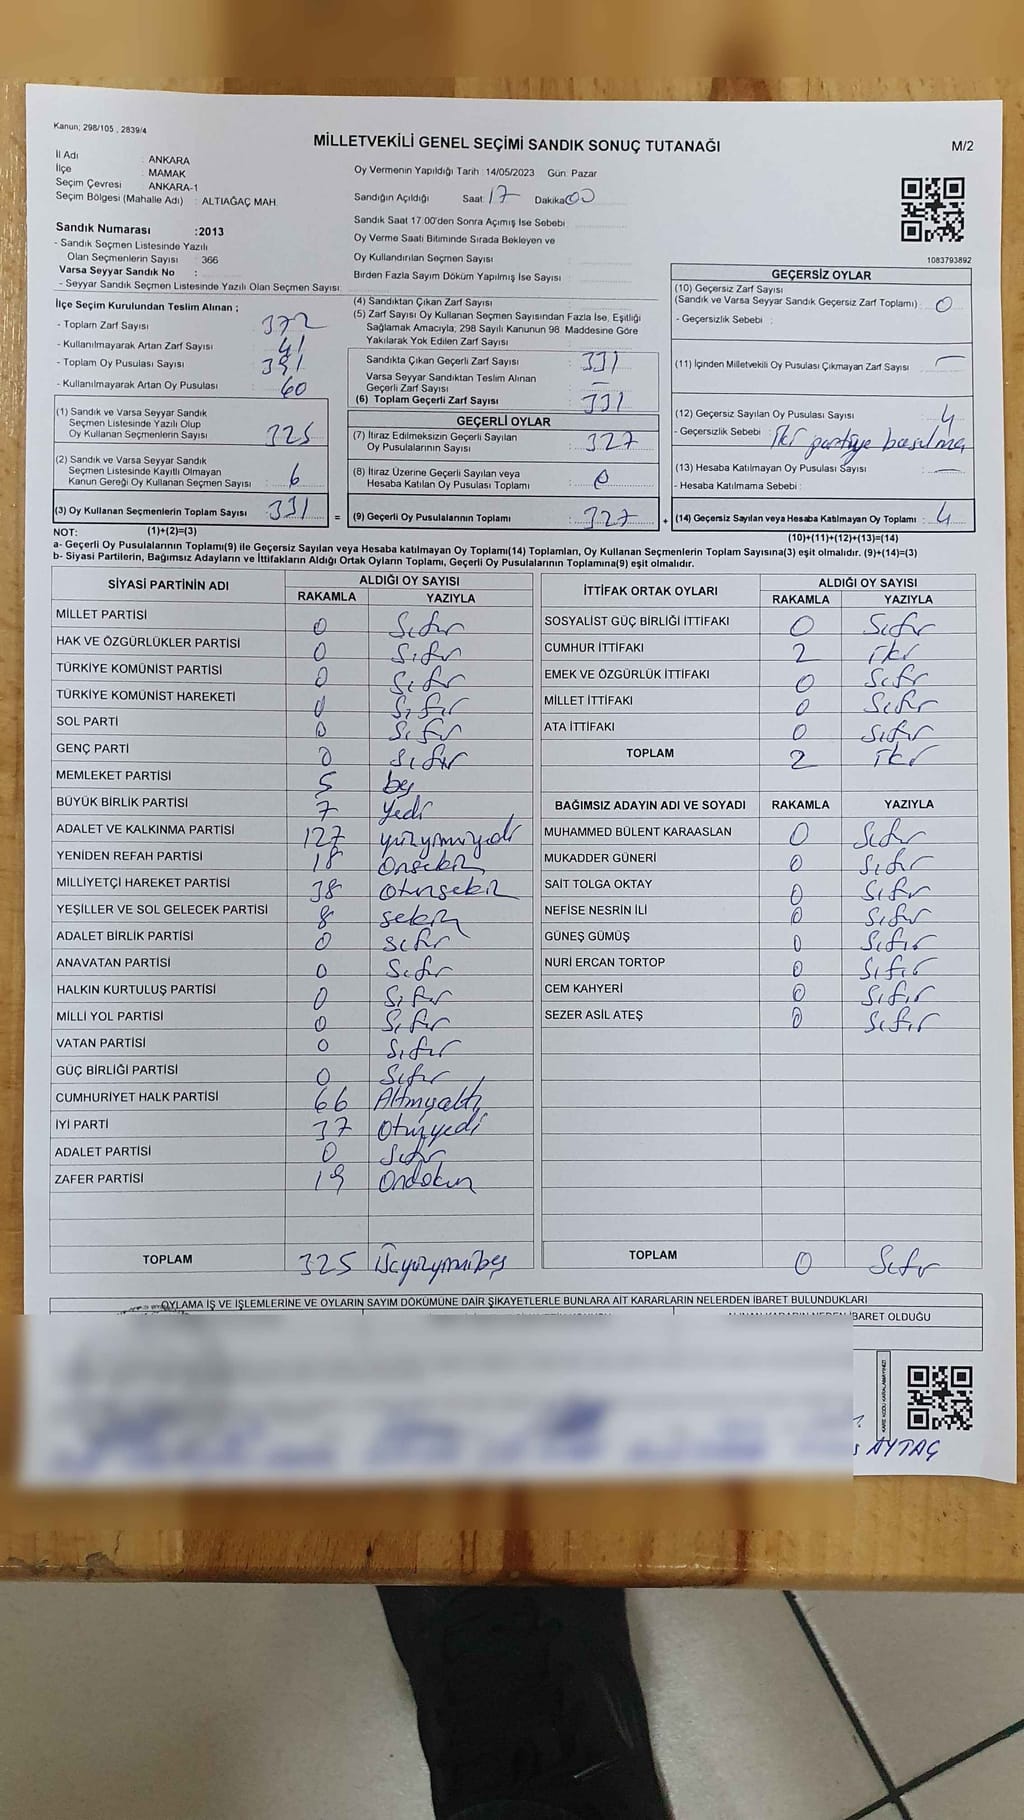 Kanun; 298/105 , 2839/4
MİLLETVEKİLİ GENEL SEÇİMİ SANDIK SONUÇ TUTANAĞI
M/2
İl Adı : ANKARA
İlçe : MAMAK
Seçim Çevresi : ANKARA-1
Seçim Bölgesi (Mahalle Adı) : ALTIAĞAÇ MAH.
Oy Vermenin Yapıldığı Tarih : 14/05/2023 Gün: Pazar
Sandığın Açıldığı Saat: 17 Dakika: 00
Sandık Saat 17:00'den Sonra Açımış İse Sebebi
Oy Verme Saati Bitiminde Sırada Bekleyen ve
Oy Kullandırılan Seçmen Sayısı
Birden Fazla Sayım Döküm Yapılmış İse Sayısı :
1083793892
Sandık Numarası :2013
- Sandık Seçmen Listesinde Yazılı
Olan Seçmenlerin Sayısı : 366
Varsa Seyyar Sandık No :
- Seyyar Sandık Seçmen Listesinde Yazılı Olan Seçmen Sayısı:
İlçe Seçim Kurulundan Teslim Alınan ;
- Toplam Zarf Sayısı : 372
- Kullanılmayarak Artan Zarf Sayısı : 41
- Toplam Oy Pusulası Sayısı : 391
- Kullanılmayarak Artan Oy Pusulası : 60
(1) Sandık ve Varsa Seyyar Sandık
Seçmen Listesinde Yazılı Olup
Oy Kullanan Seçmenlerin Sayısı : 325
(2) Sandık ve Varsa Seyyar Sandık
Seçmen Listesinde Kayıtlı Olmayan
Kanun Gereği Oy Kullanan Seçmen Sayısı : 6
(3) Oy Kullanan Seçmenlerin Toplam Sayısı : 331
(4) Sandıktan Çıkan Zarf Sayısı :
(5) Zarf Sayısı Oy Kullanan Seçmen Sayısından Fazla İse, Eşitliği
Sağlamak Amacıyla, 298 Sayılı Kanunun 98. Maddesine Göre
Yakılarak Yok Edilen Zarf Sayısı :
Sandıkta Çıkan Geçerli Zarf Sayısı : 331
Varsa Seyyar Sandıktan Teslim Alınan
Geçerli Zarf Sayısı : –
(6) Toplam Geçerli Zarf Sayısı : 331
GEÇERLİ OYLAR
(7) İtiraz Edilmeksizin Geçerli Sayılan
Oy Pusulalarının Sayısı : 327
(8) İtiraz Üzerine Geçerli Sayılan veya
Hesaba Katılan Oy Pusulası Toplamı : 0
= (9) Geçerli Oy Pusulalarının Toplamı : 327
GEÇERSİZ OYLAR
(10) Geçersiz Zarf Sayısı
(Sandık ve Varsa Seyyar Sandık Geçersiz Zarf Toplamı) : 0
- Geçersizlik Sebebi :
(11) İçinden Milletvekili Oy Pusulası Çıkmayan Zarf Sayısı : –
(12) Geçersiz Sayılan Oy Pusulası Sayısı : 4
- Geçersizlik Sebebi : İki partiye basılma
(13) Hesaba Katılmayan Oy Pusulası Sayısı : –
- Hesaba Katılmama Sebebi :
+ (14) Geçersiz Sayılan veya Hesaba Katılmayan Oy Toplamı : 4
NOT: (1)+(2)=(3)
(10)+(11)+(12)+(13)=(14)
a- Geçerli Oy Pusulalarının Toplamı(9) ile Geçersiz Sayılan veya Hesaba katılmayan Oy Toplamı(14) Toplamları, Oy Kullanan Seçmenlerin Toplam Sayısına(3) eşit olmalıdır. (9)+(14)=(3)
b- Siyasi Partilerin, Bağımsız Adayların ve İttifakların Aldığı Ortak Oyların Toplamı, Geçerli Oy Pusulalarının Toplamına(9) eşit olmalıdır.
SİYASİ PARTİNİN ADI ALDIĞI OY SAYISI
RAKAMLA YAZIYLA
MİLLET PARTİSİ 0 Sıfır
HAK VE ÖZGÜRLÜKLER PARTİSİ 0 Sıfır
TÜRKİYE KOMÜNİST PARTİSİ 0 Sıfır
TÜRKİYE KOMÜNİST HAREKETİ 0 Sıfır
SOL PARTİ 0 Sıfır
GENÇ PARTİ 0 Sıfır
MEMLEKET PARTİSİ 5 beş
BÜYÜK BİRLİK PARTİSİ 7 yedi
ADALET VE KALKINMA PARTİSİ 127 yüzyirmiyedi
YENİDEN REFAH PARTİSİ 18 Onsekiz
MİLLİYETÇİ HAREKET PARTİSİ 38 Otuzsekiz
YEŞİLLER VE SOL GELECEK PARTİSİ 8 sekiz
ADALET BİRLİK PARTİSİ 0 sıfır
ANAVATAN PARTİSİ 0 Sıfır
HALKIN KURTULUŞ PARTİSİ 0 Sıfır
MİLLİ YOL PARTİSİ 0 Sıfır
VATAN PARTİSİ 0 Sıfır
GÜÇ BİRLİĞİ PARTİSİ 0 Sıfır
CUMHURİYET HALK PARTİSİ 66 Altmışaltı
İYİ PARTİ 37 Otuzyedi
ADALET PARTİSİ 0 Sıfır
ZAFER PARTİSİ 19 Ondokuz
TOPLAM 325 Üçyüzyirmibeş
İTTİFAK ORTAK OYLARI ALDIĞI OY SAYISI
RAKAMLA YAZIYLA
SOSYALİST GÜÇ BİRLİĞİ İTTİFAKI 0 Sıfır
CUMHUR İTTİFAKI 2 İki
EMEK VE ÖZGÜRLÜK İTTİFAKI 0 Sıfır
MİLLET İTTİFAKI 0 Sıfır
ATA İTTİFAKI 0 Sıfır
TOPLAM 2 İki
BAĞIMSIZ ADAYIN ADI VE SOYADI RAKAMLA YAZIYLA
MUHAMMED BÜLENT KARAASLAN 0 Sıfır
MUKADDER GÜNERİ 0 Sıfır
SAİT TOLGA OKTAY 0 Sıfır
NEFİSE NESRİN İLİ 0 Sıfır
GÜNEŞ GÜMÜŞ 0 Sıfır
NURİ ERCAN TORTOP 0 Sıfır
CEM KAHYERİ 0 Sıfır
SEZER ASİL ATEŞ 0 Sıfır
TOPLAM 0 Sıfır
OYLAMA İŞ VE İŞLEMLERİNE VE OYLARIN SAYIM DÖKÜMÜNE DAİR ŞİKAYETLERLE BUNLARA AİT KARARLARIN NELERDEN İBARET BULUNDUKLARI
İBARET OLDUĞU
KARE KODU KARALAMAYINIZ!
AYTAÇ